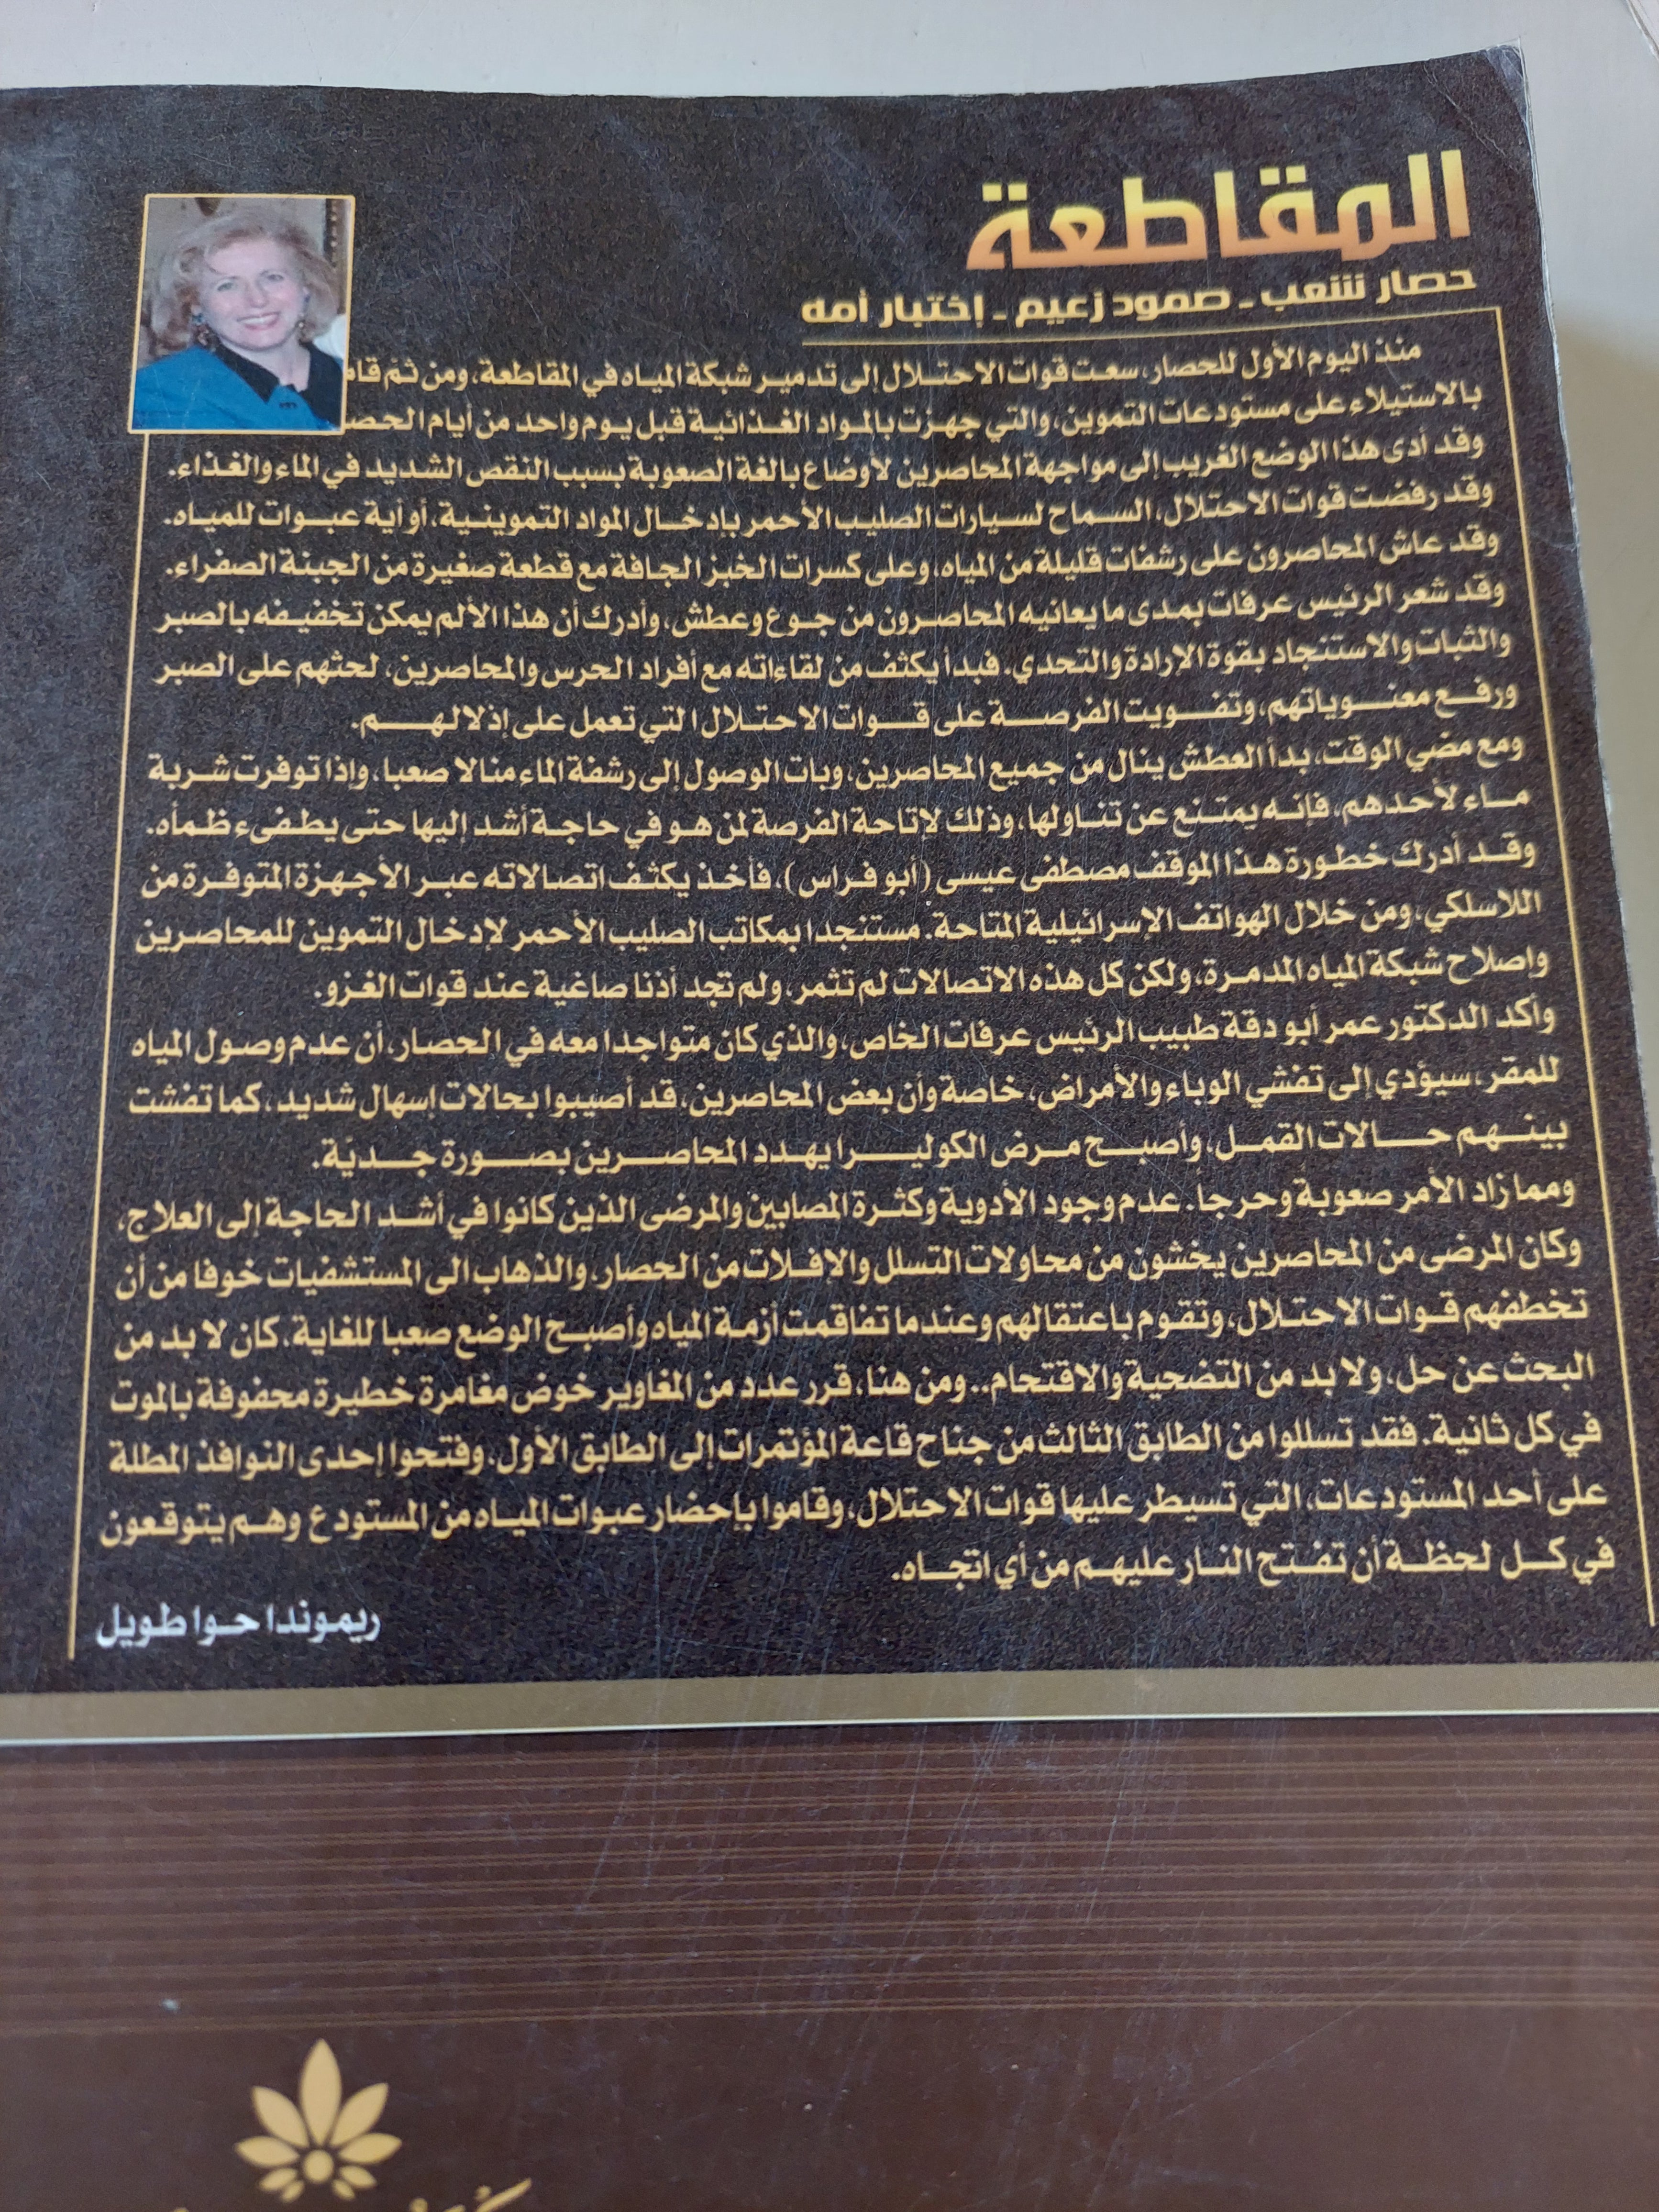 المقاطعة
حصار شعب - صمود زعيم - إختبار أمه
منذ اليوم الأول للحصار، سعت قوات الاحتلال إلى تدمير شبكة المياه في المقاطعة، ومن ثم
بالاستيلاء على مستودعات التموين، والتي جهزت بالمواد الغذائية قبل يوم واحد من أيام
وقد أدى هذا الوضع الغريب إلى مواجهة المحاصرين لأوضاع بالغة الصعوبة بسبب النقص الشديد في الماء والغذاء.
وقد رفضت قوات الاحتلال، السماح لسيارات الصليب الأحمر بإدخال المواد التموينية، أو أية عبوات للمياه.
وقد عاش المحاصرون على رشفات قليلة من المياه، وعلى كسرات الخبز الجافة مع قطعة صغيرة من الجبنة الصفراء.
وقد شعر الرئيس عرفات بمدى ما يعانيه المحاصرون من جوع وعطش، وأدرك أن هذا الألم يمكن تخفيفه بالصبر
والثبات والاستنجاد بقوة الإرادة والتحدي. فبدأ يكثف من لقاءاته مع أفراد الحرس والمحاصرين، لحثهم على الصبر
ورفع معنوياتهم، وتفويت الفرصة على قوات الاحتلال التي تعمل على إذلالهم.
ومع مضي الوقت، بدأ العطش ينال من جميع المحاصرين، وبات الوصول إلى رشفة الماء منالا صعبا، وإذا توفرت شربة
ماء لأحدهم، فإنه يمتنع عن تناولها، وذلك لإتاحة الفرصة لمن هو في حاجة أشد إليها حتى يطفىء ظمأه.
وقد أدرك خطورة هذا الموقف مصطفى عيسى (أبو فراس)، فأخذ يكثف اتصالاته عبر الأجهزة المتوفرة من
اللاسلكي، ومن خلال الهواتف الاسرائيلية المتاحة. مستنجدا بمكاتب الصليب الأحمر لإدخال التموين للمحاصرين
وإصلاح شبكة المياه المدمرة، ولكن كل هذه الاتصالات لم تثمر، ولم تجد أذنا صاغية عند قوات الغزو.
وأكد الدكتور عمر أبو دقة طبيب الرئيس عرفات الخاص، والذي كان متواجدا معه في الحصار، أن عدم وصول المياه
للمقر، سيؤدي إلى تفشي الوباء والأمراض، خاصة وأن بعض المحاصرين، قد أصيبوا بحالات إسهال شديد، كما تفشت
بينهم حالات القمل، وأصبح مرض الكوليرا يهدد المحاصرين بصورة جدية.
ومما زاد الأمر صعوبة وحرجا. عدم وجود الأدوية وكثرة المصابين والمرضى الذين كانوا في أشد الحاجة إلى العلاج،
وكان المرضى من المحاصرين يخشون من محاولات التسلل والإفلات من الحصار، والذهاب الى المستشفيات خوفا من أن
تخطفهم قوات الاحتلال، وتقوم باعتقالهم وعندما تفاقمت أزمة المياه وأصبح الوضع صعبا للغاية، كان لا بد من
البحث عن حل، ولا بد من التضحية والاقتحام.. ومن هنا، قرر عدد من المغاوير خوض مغامرة خطيرة محفوفة بالموت
في كل ثانية. فقد تسللوا من الطابق الثالث من جناح قاعة المؤتمرات إلى الطابق الأول، وفتحوا إحدى النوافذ المطلة
على أحد المستودعات، التي تسيطر عليها قوات الاحتلال، وقاموا بإحضار عبوات المياه من المستودع وهم يتوقعون
في كل لحظة أن تفتح النار عليهم من أي اتجاه.
ريموندا حوا طويل